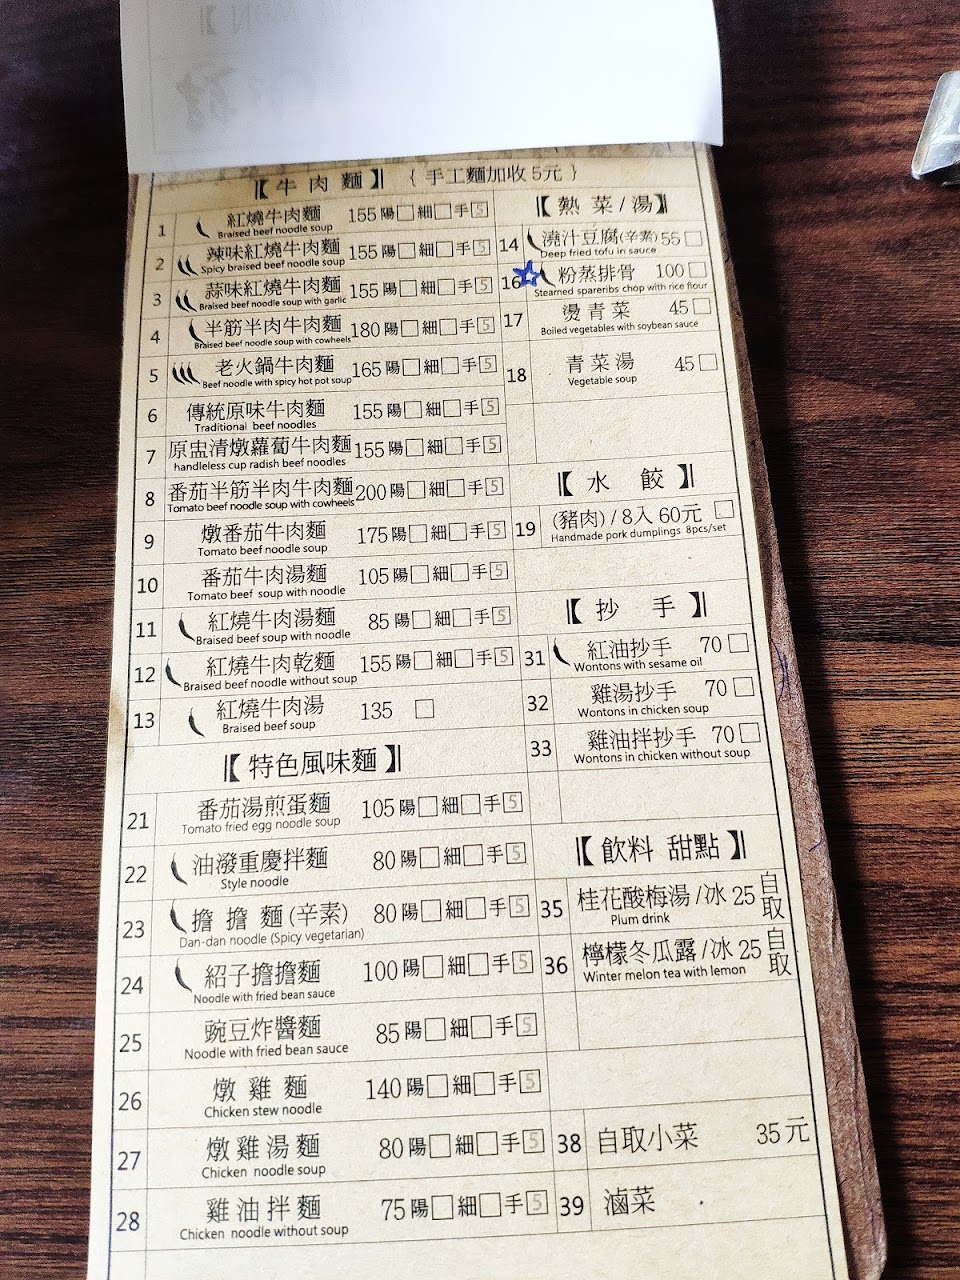 【牛肉麵】 {手工麵加收5元}
1 紅燒牛肉麵 155 陽□ 細□ 手5
Braised beef noodle soup
2 辣味紅燒牛肉麵 155 陽□ 細□ 手5
Spicy braised beef noodle soup
3 蒜味紅燒牛肉麵 155 陽□ 細□ 手5
Braised beef noodle soup with garlic
4 半筋半肉牛肉麵 180 陽□ 細□ 手5
Braised beef noodle soup with cowheels
5 老火鍋牛肉麵 165 陽□ 細□ 手5
Beef noodle with spicy hot pot soup
6 傳統原味牛肉麵 155 陽□ 細□ 手5
Traditional beef noodles
7 原盅清燉蘿蔔牛肉麵 155 陽□ 細□ 手5
handleless cup radish beef noodles
8 番茄半筋半肉牛肉麵 200 陽□ 細□ 手5
Tomato beef noodle soup with cowheels
9 燉番茄牛肉麵 175 陽□ 細□ 手5
Tomato beef noodle soup
10 番茄牛肉湯麵 105 陽□ 細□ 手5
Tomato beef soup with noodle
11 紅燒牛肉湯麵 85 陽□ 細□ 手5
Braised beef soup with noodle
12 紅燒牛肉乾麵 155 陽□ 細□ 手5
Braised beef noodle without soup
13 紅燒牛肉湯 135 □
Braised beef soup
【特色風味麵】
21 番茄湯煎蛋麵 105 陽□ 細□ 手5
Tomato fried egg noodle soup
22 油潑重慶拌麵 80 陽□ 細□ 手5
Style noodle
23 擔擔麵(辛素) 80 陽□ 細□ 手5
Dan-dan noodle (Spicy vegetarian)
24 紹子擔擔麵 100 陽□ 細□ 手5
Noodle with fried bean sauce
25 豌豆炸醬麵 85 陽□ 細□ 手5
Noodle with fried bean sauce
26 燉雞麵 140 陽□ 細□ 手5
Chicken stew noodle
27 燉雞湯麵 80 陽□ 細□ 手5
Chicken noodle soup
28 雞油拌麵 75 陽□ 細□ 手5
Chicken noodle without soup
【熱菜/湯】
14 澆汁豆腐(辛素) 55 □
Deep fried tofu in sauce
16 ☆ 粉蒸排骨 100 □
Steamed spareribs chop with rice flour
17 燙青菜 45 □
Boiled vegetables with soybean sauce
18 青菜湯 45 □
Vegetable soup
【水餃】
19 (豬肉)/8入 60元 □
Handmade pork dumplings 8pcs/set
【抄手】
31 紅油抄手 70 □
Wontons with sesame oil
32 雞湯抄手 70 □
Wontons in chicken soup
33 雞油拌抄手 70 □
Wontons in chicken without soup
【飲料 甜點】
35 桂花酸梅湯/冰 25 自取
Plum drink
36 檸檬冬瓜露/冰 25 自取
Winter melon tea with lemon
38 自取小菜 35元
39 滷菜